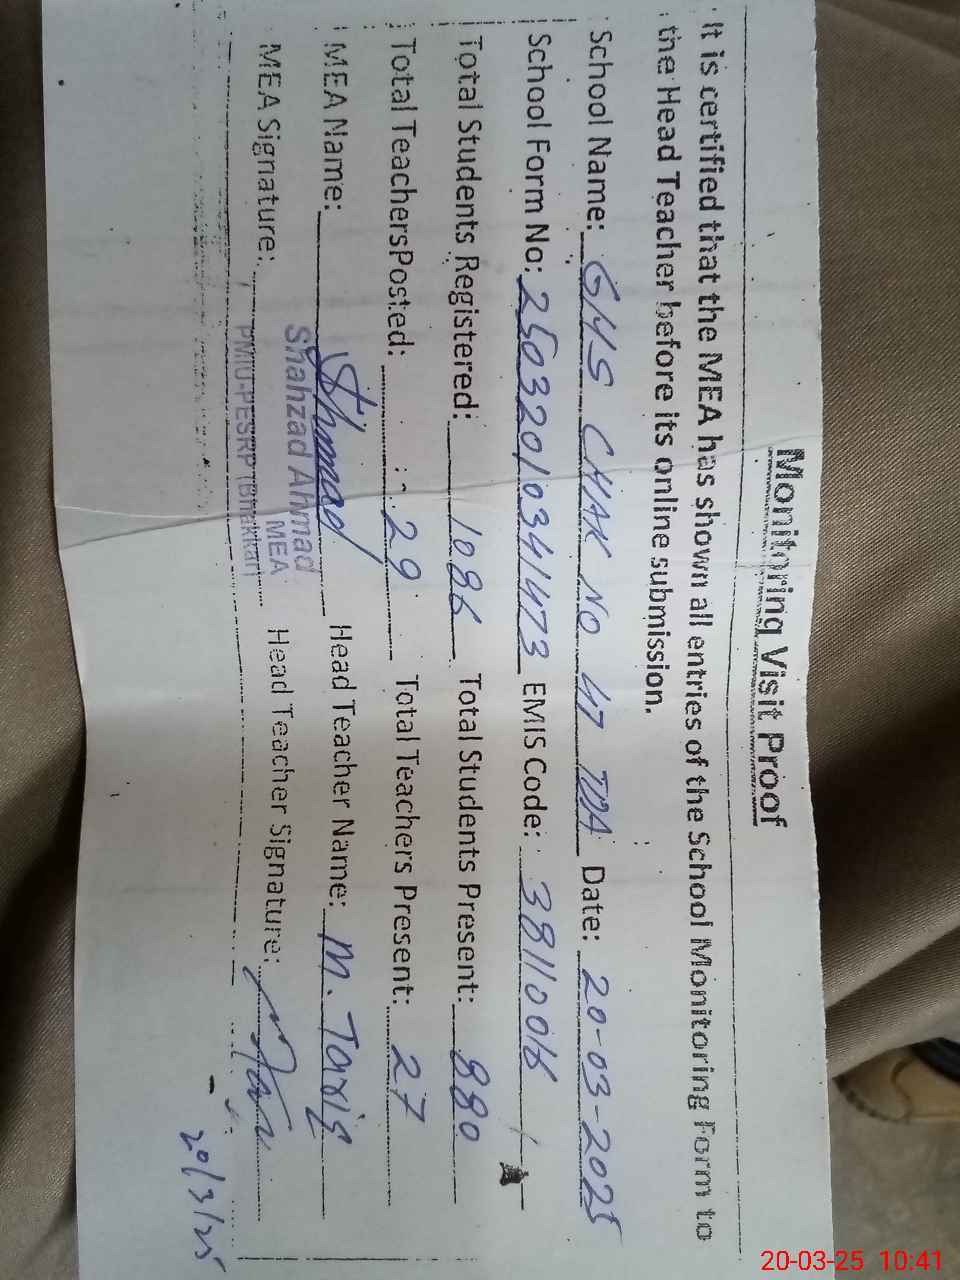 Monitoring Visit Proof
It is certified that the MEA has shown all entries of the School Monitoring Form to
the Head Teacher before its online submission.
School Name: GHS CHAK NO 47 TDA Date: 20-03-2025
School Form No: 25032010341473 EMIS Code: 38110016
Total Students Registered: 1086 Total Students Present: 880
Total TeachersPosted: 29 Total Teachers Present: 27
MEA Name: Ahmad Head Teacher Name: M. Tariq
Shahzad Ahmad
MEA
MEA Signature: PMIU-PESRP (Bhakkar) Head Teacher Signature:
20/3/25
20-03-25 10:41